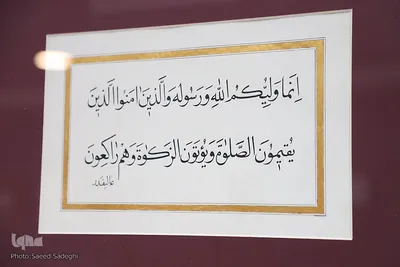 اِنَّمَا وَلِيُّكُمُ اللهُ وَرَسُولُهُ وَالَّذِينَ اٰمَنُوا الَّذِينَ
يُقِيمُونَ الصَّلٰوةَ وَيُؤْتُونَ الزَّكٰوةَ وَهُمْ رَاكِعُونَ
iqna
Photo: Saeed Sadeghi